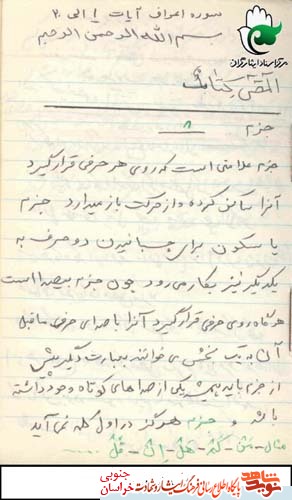 سوره اعراف آیات ۱ الی ۲۰
بسم الله الرحمن الرحیم
مرکز اسناد ایثارگران
المص کتاب
جزم ۸
جزم علامتی است که روی هر حرفی قرار گیرد
آنرا ساکن کرده و از حرکت باز میدارد جزم
یا سکون برای چسبانیدن دو حرف به
یکدیگر نیز بکار می رود چون جزم بیصدا است
هرگاه روی حرفی قرار گیرد آنرا با صدای حرف ماقبل
آن به یک بخش می خوانند بعبارت دیگر پیش
از جزم باید همیشه یکی از صداهای کوتاه وجود داشته
باشد و جزم هرگز در اول کلمه نمی آید
مثال - مَنْ - کَمْ - هَلْ - اِنْ - قُلْ
نوید شاهد
پایگاه اطلاع رسانی فرهنگ ایثار و شهادت
خراسان جنوبی